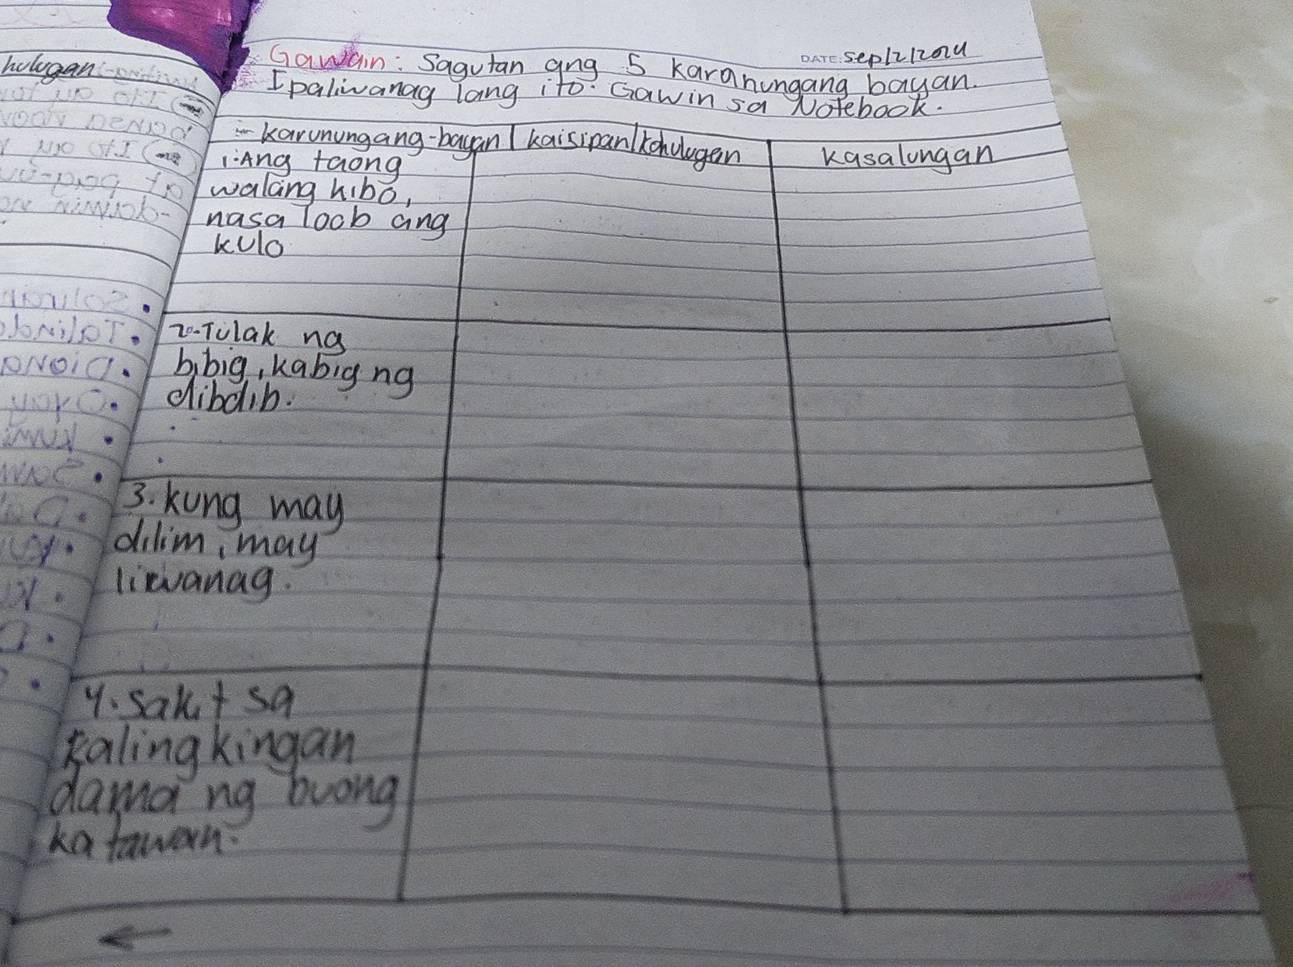 hulugan
DATE: Sep/2/2024
Gawain: Sagutan ang 5 karanungang bayan.
Ipaliwanag lang ito. Gawin sa Notebook.
karunungang-bayan | kaisipan/kahulugan | kasalungan
1. Ang taong
walang kibo,
nasa loob ang
kulo
2. Tulak ng
bibig, kabig ng
dibdib.
3. kung may
dilim, may
liwanag.
4. sakit sa
kalingkingan
dama ng buong
katawan.